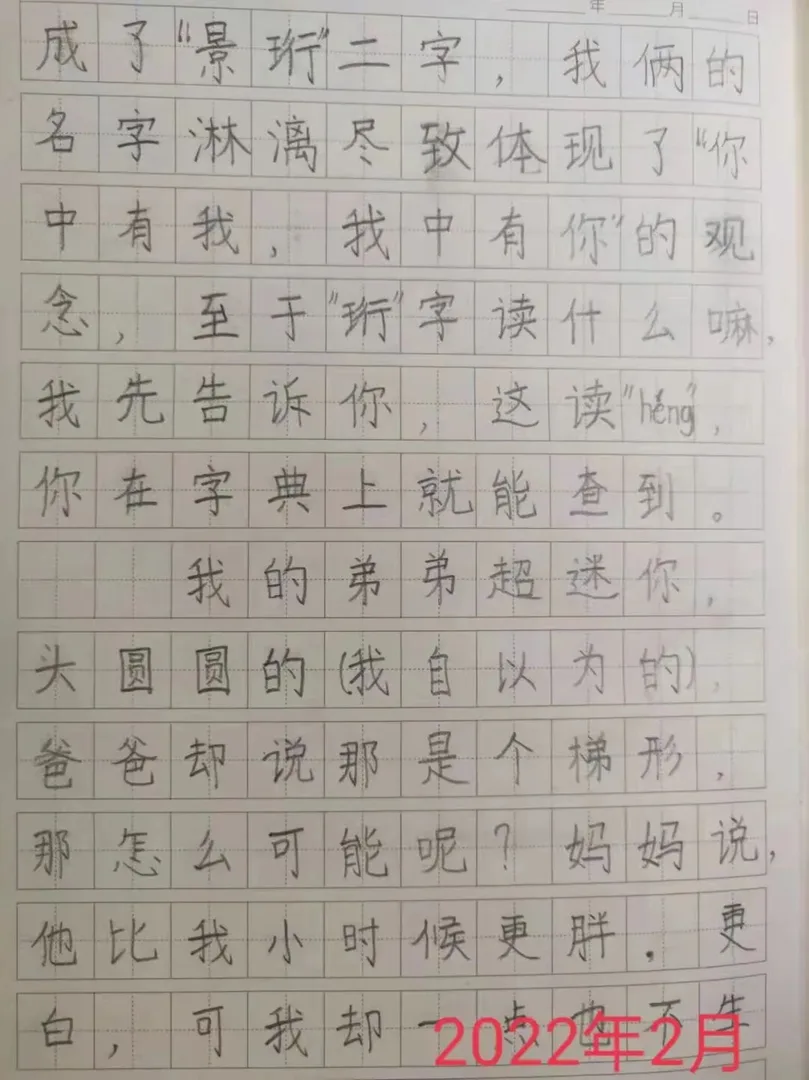 年 月 日
成了“景珩”二字，我俩的
名字淋漓尽致体现了“你
中有我，我中有你”的观
念，至于“珩”字读什么嘛，
我先告诉你，这读“héng”，
你在字典上就能查到。
我的弟弟超迷你，
头圆圆的(我自以为的)，
爸爸却说那是个梯形，
那怎么可能呢？妈妈说，
他比我小时候更胖．更
白，可我却一点也不生
2022年2月